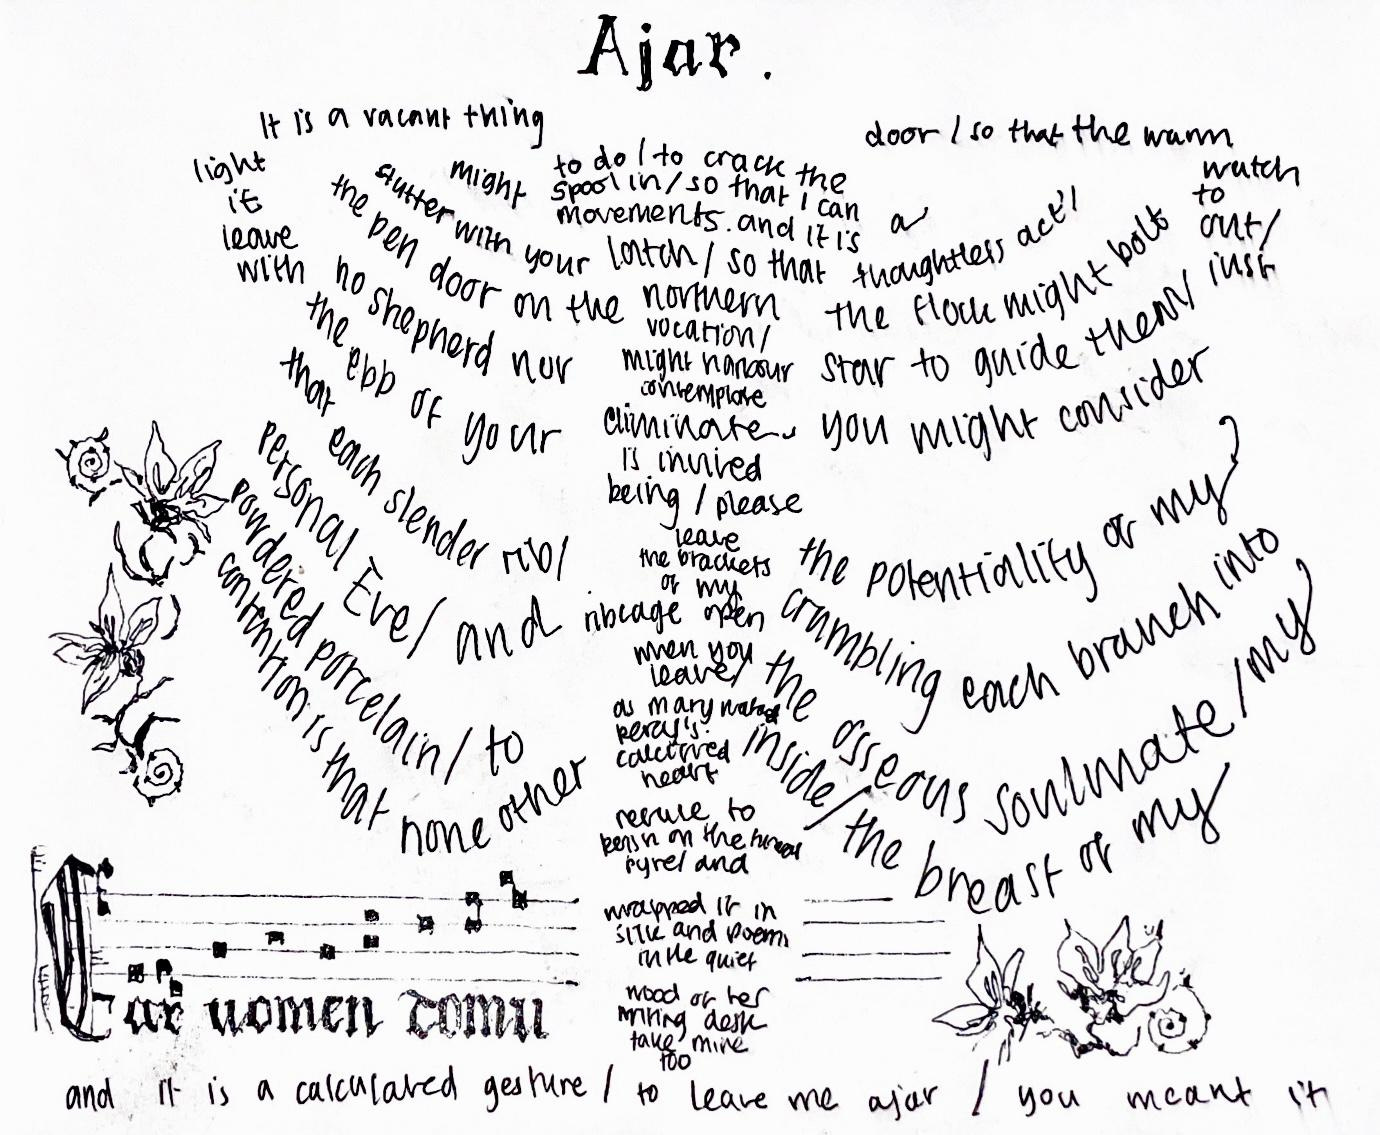 Ajar.
It is a vacant thing to do / to crack the door / so that the warm
light might spool in / so that I can watch
it stutter with your movements. and it is a thoughtless act / to
leave the pen door on the latch / so that the flock might bolt out /
with no shepherd nor northern star to guide them / just
the ebb of your vocation / you might consider
that each slender rib / might harbour the potentiality of my
personal Eve / and contemplate crumbling each branch into
powdered porcelain / to eliminate the osseous soulmate / my
contention is that none other is invited inside / the breast of my
being / please
leave
the brackets
of my
ribcage open
when you
leave /
as mary
percy's
calcified
heart
refuse to
perish on the funeral
pyre / and
wrapped it in
silk and poems
in the quiet
wood of her
writing desk
take mine
too
uomen domu
and it is a calculated gesture / to leave me ajar / you meant it